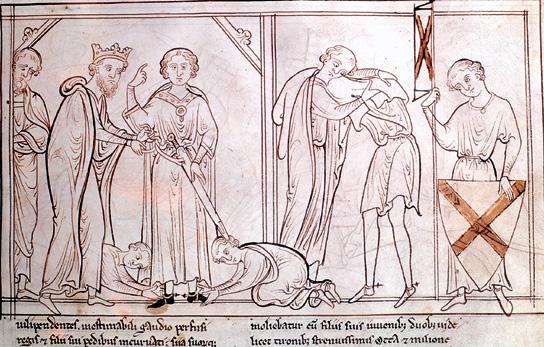 uilipendentes, inestimabili gaudio perfusi
regis & filii sui pedib; incuruati: sua
moliebatur cū filiis suis iuuenib; duob; uide
licet tironib; strenuissimis otta & milione